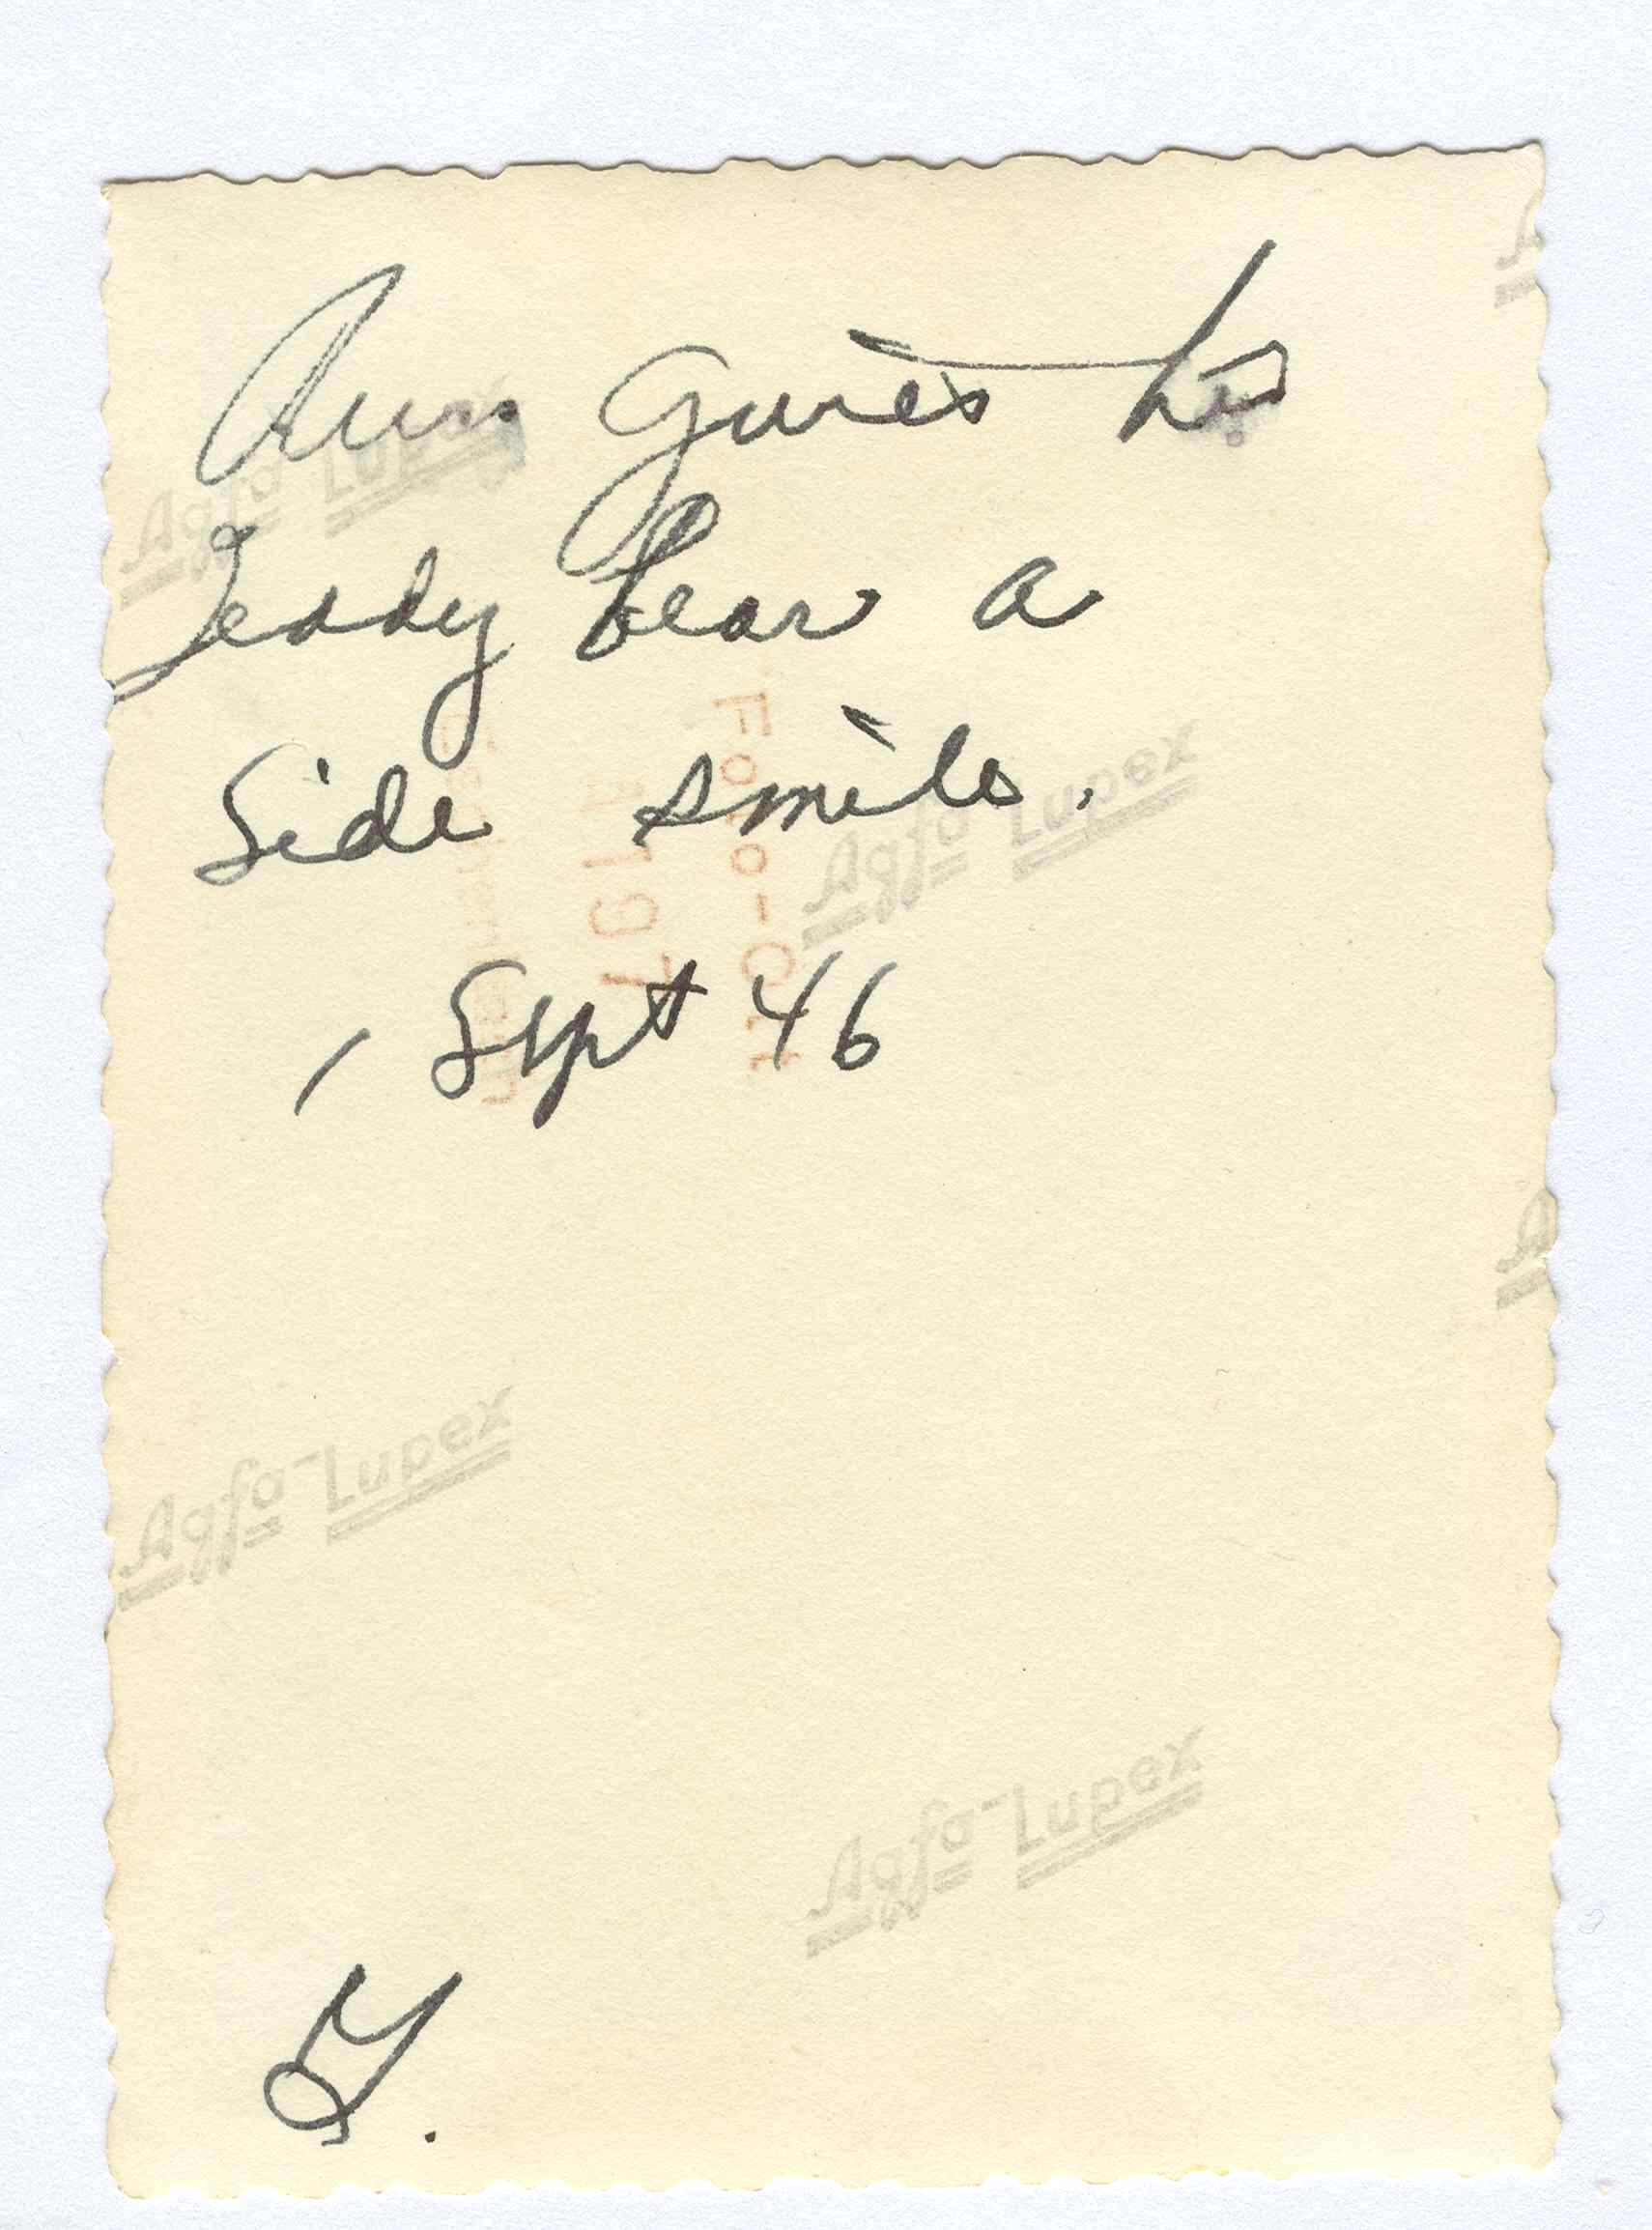 Ann gives his
Teddy bear a
Side smile.
1 Sept 46
Agfa-Lupex
Agfa-Lupex
Agfa-Lupex
Agfa-Lupex
A 197